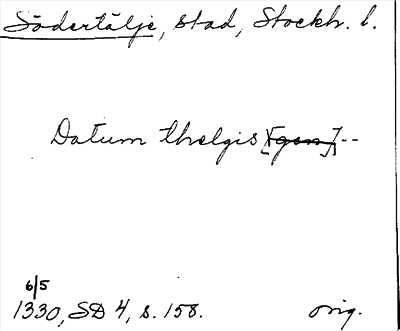 Södertälje, stad, Stockh. l.
Datum thelgis [gen] --
6/5
1330, SD 4, s. 158. orig.